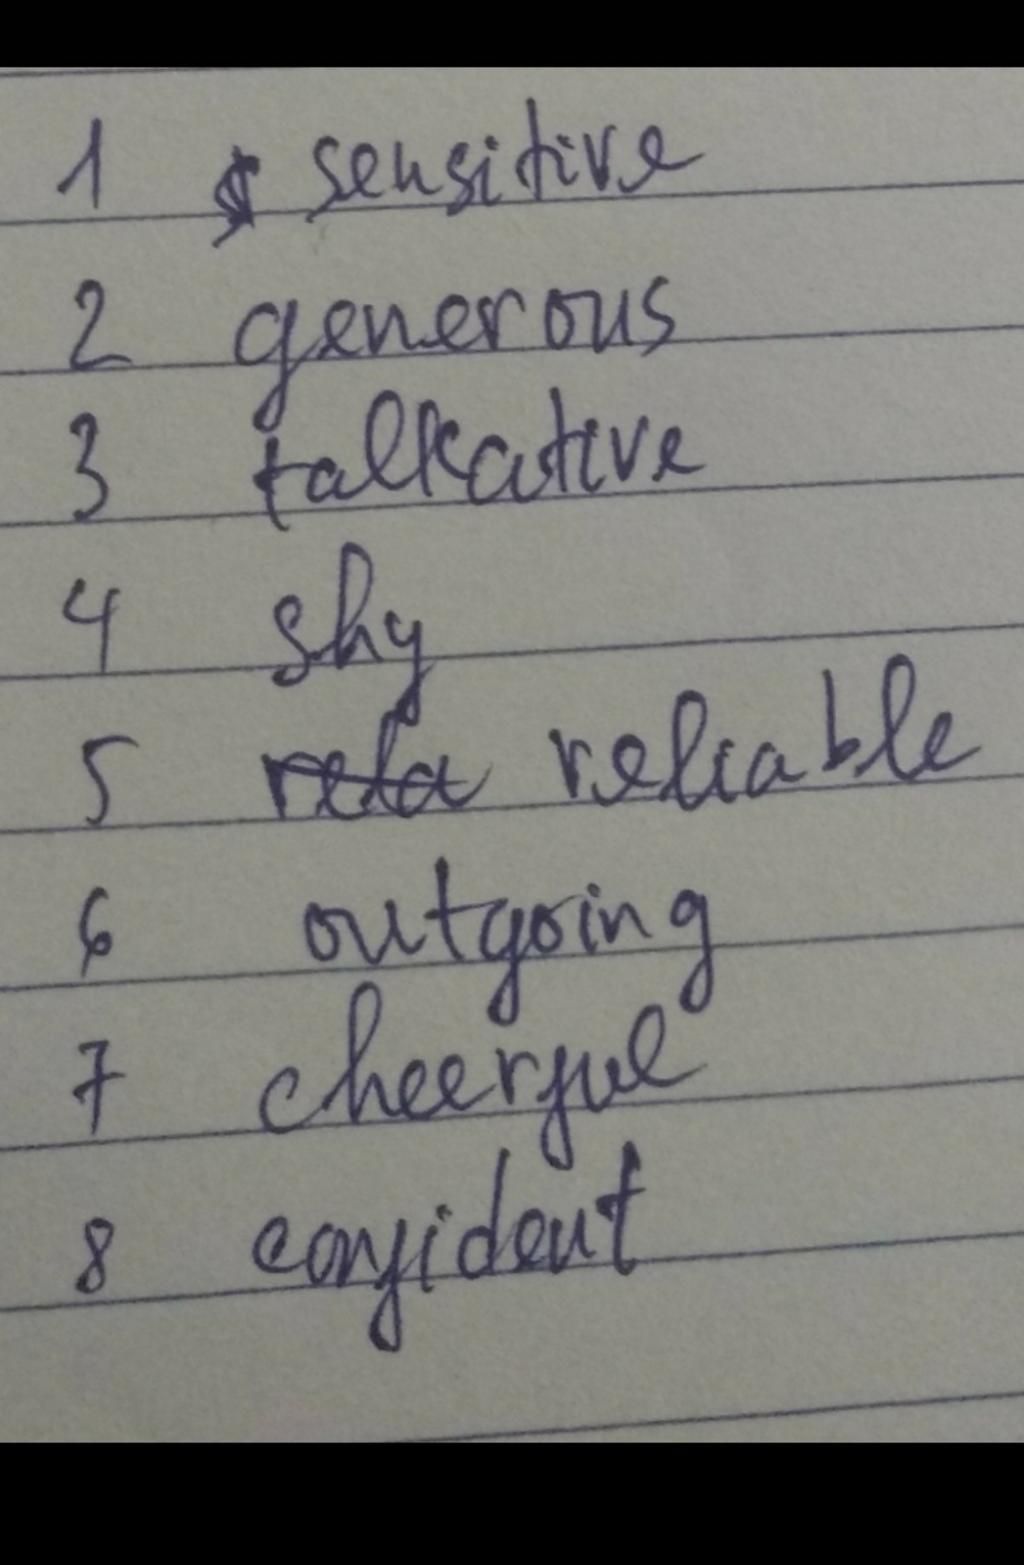 1 sensitive
2 generous
3 talkative
4 shy
5 rela reliable
6 outgoing
7 cheerful
8 confident